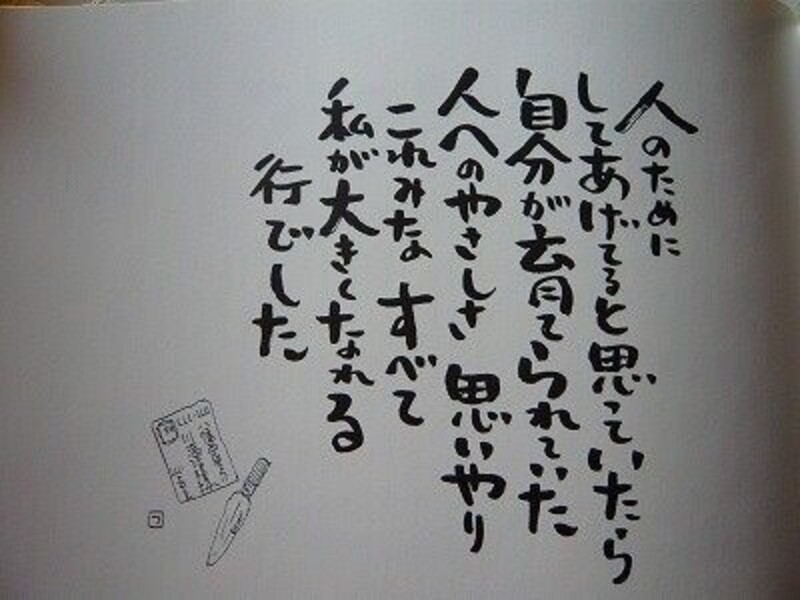 人のために
してあげてると思っていたら
自分が育てられていた
人へのやさしさ 思いやり
これみな すべて
私が大きくなれる
行でした